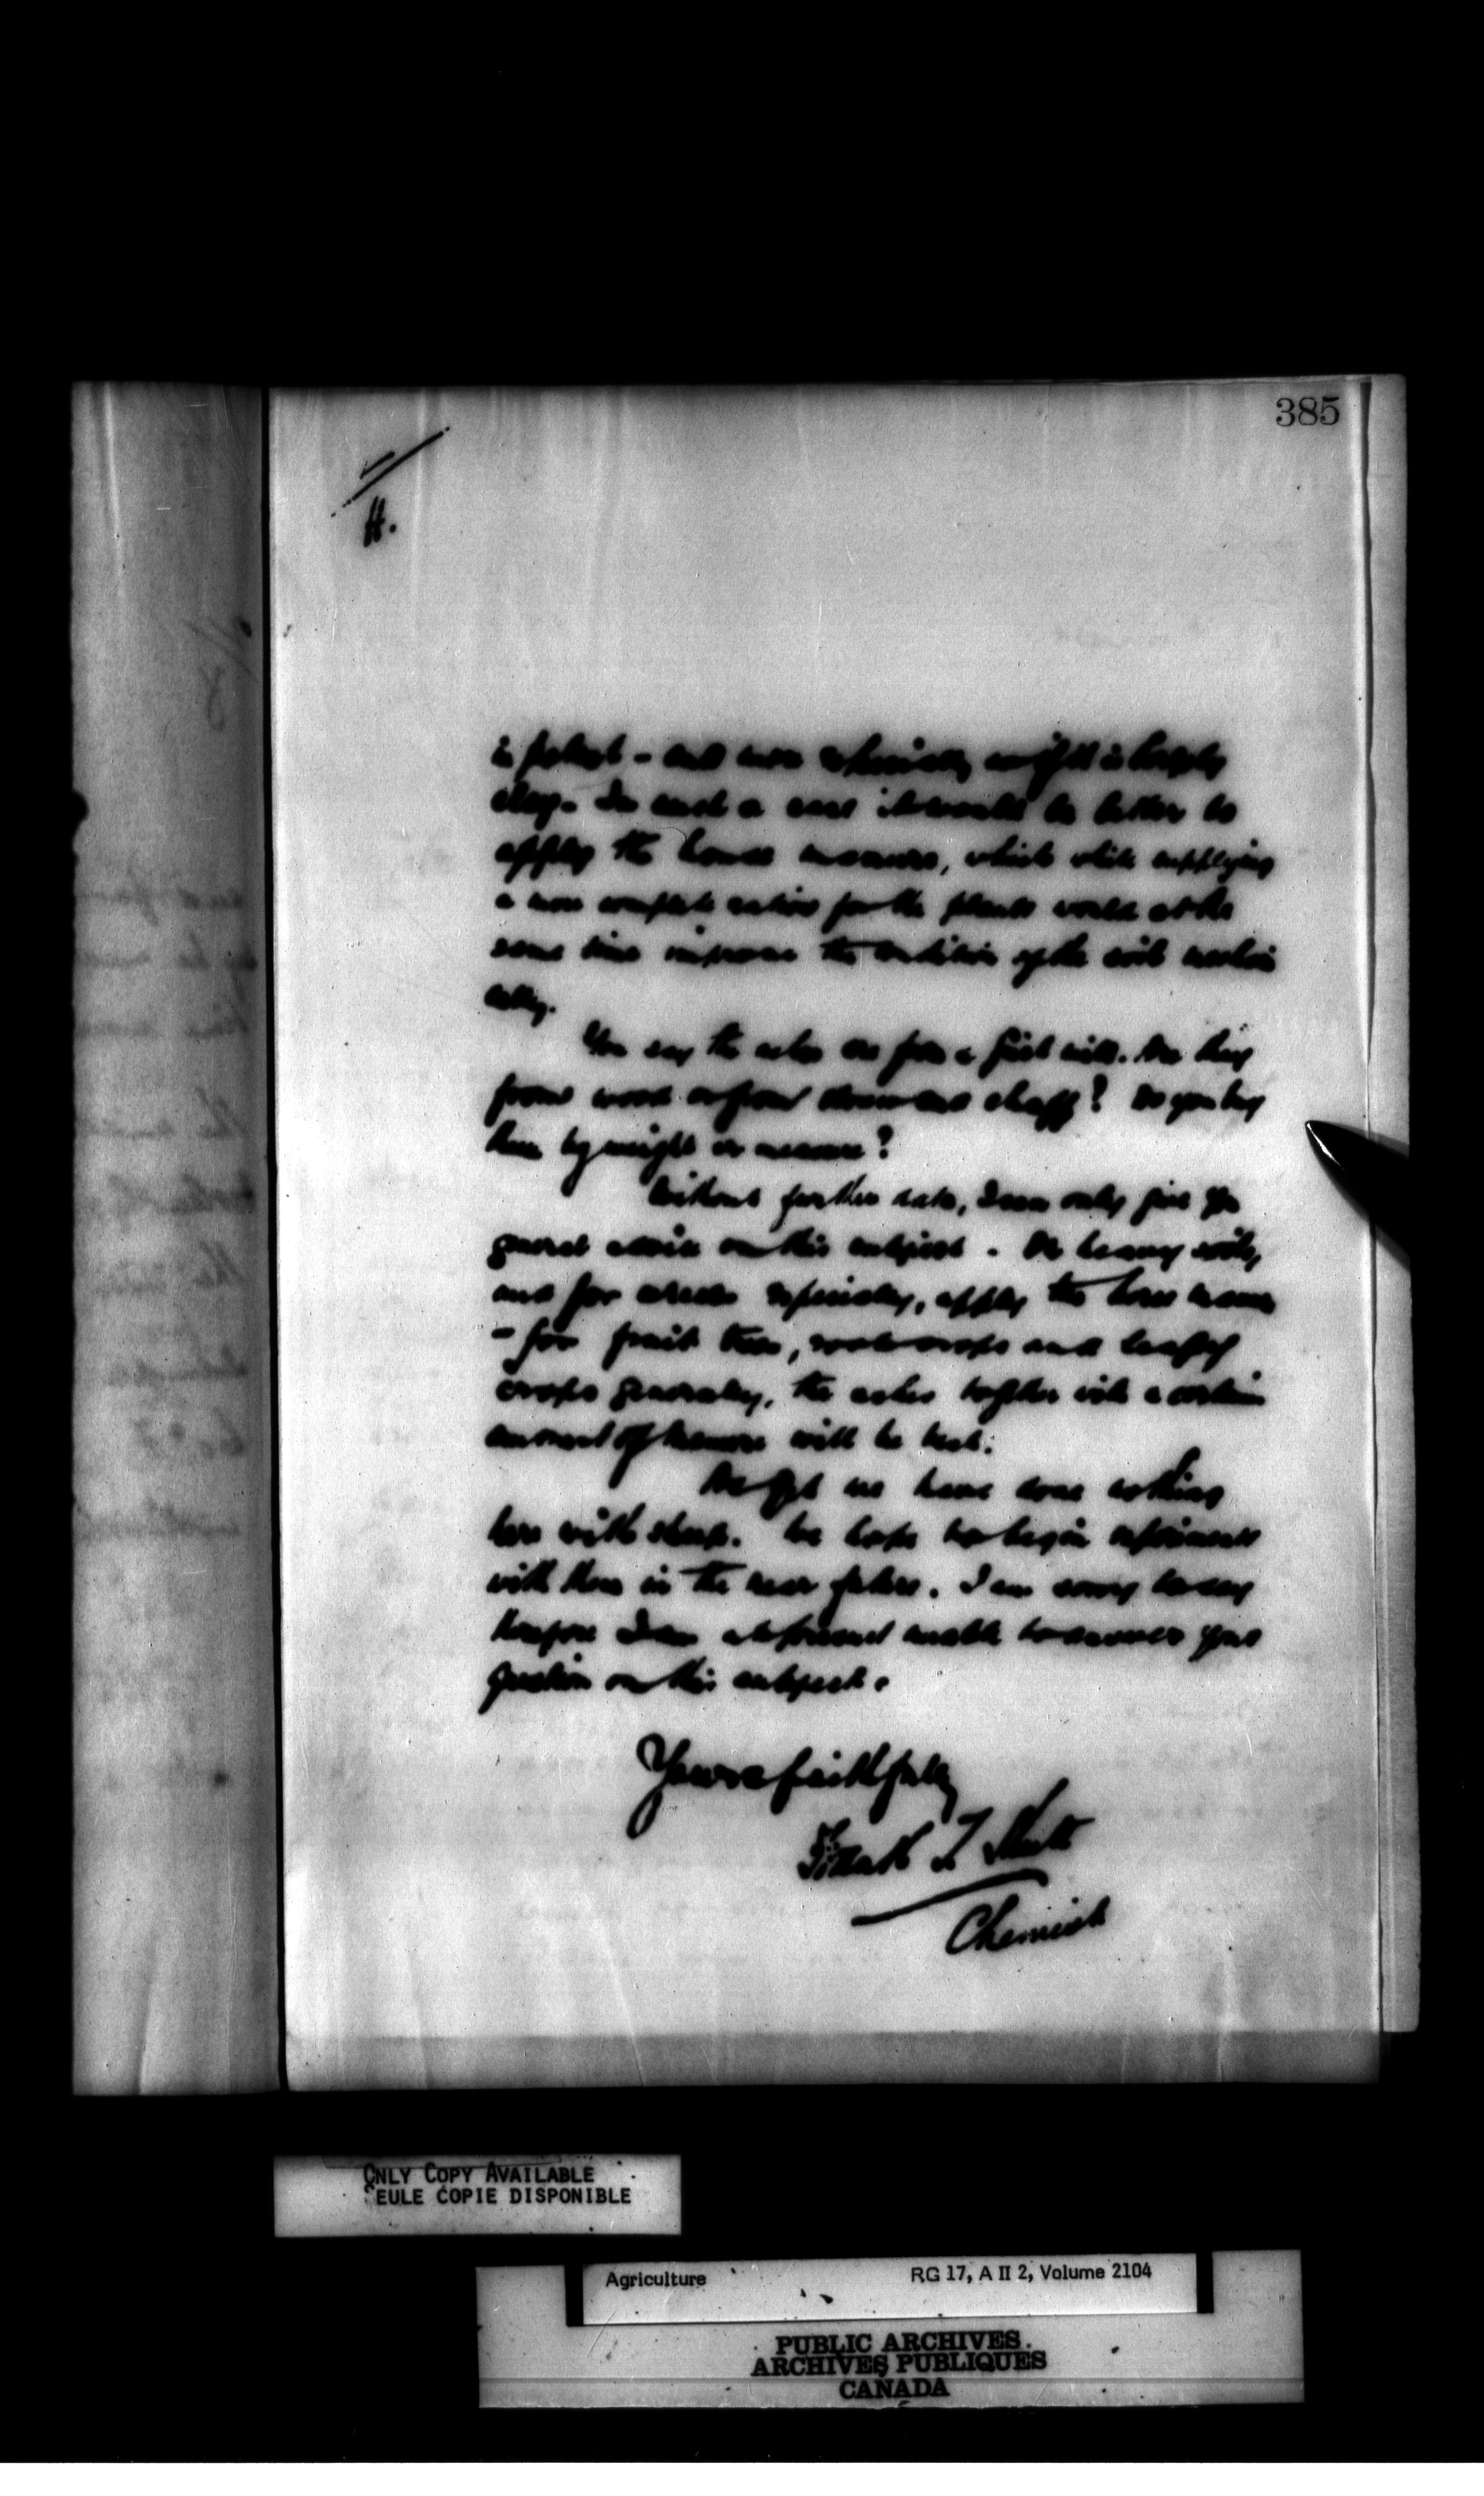 385
H.
in potash - and more especially so if it is largely
clay. In such a case it would be better to
apply the horse manure, which while supplying
a more complete ration for the plants would at the
same time improve the condition of the soil
You say the ashes are from a grist mill. Are they
from wood or from straw and chaff? Do you buy
them by weight or measure?
Without further data, I can only give you
general advice on this subject. On heavy soils,
and for cereals especially, apply the horse manure
- for fruit trees, root crops and leafy
crops generally, the ashes together with a certain
amount of manure will be best.
As yet we have done nothing
here with sheep. We hope to begin experiments
with them in the near future. I am sorry to say
therefore I am at present unable to answer your
question on this subject.
Yours faithfully
Frank T Shutt
Chemist
ONLY COPY AVAILABLE
SEULE COPIE DISPONIBLE
Agriculture RG 17, A II 2, Volume 2104
PUBLIC ARCHIVES
ARCHIVES PUBLIQUES
CANADA